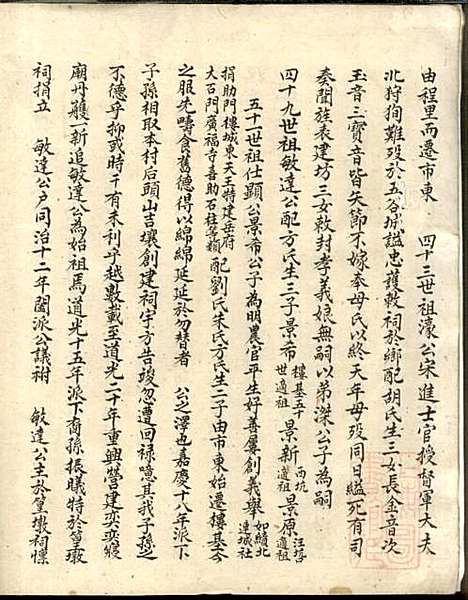 由程里而遷市東　四十三世祖濠公宋進士官授督軍大夫
北狩徇難歿於五谷城謚忠護敕祠於鄉配胡氏生三女長金音次
玉音三寶音皆矢節不嫁奉母氏以終天年母歿同日縊死有司
奏聞旌表建坊三女敕封孝義娘無嗣以弟深公子為嗣
四十九世祖敏達公配方氏生三子景希樓基五十世遷祖景新西坑遷祖景原汪坑遷祖
五十一世祖仕顯公景希公子為明農官平生好善屢創義舉如績北連城社
捐助門樓城東天王特建岳府大石門廣福寺喜助石柱等類配劉氏朱氏方氏生二子由市東始遷樓基今
之服先疇食舊德得以綿綿延延於勿替者　公之澤也嘉慶十八年派下
子孫相取本村后頭山吉壤創建祠宇方告竣忽遭回祿噫其我子孫之
不德乎抑或時干有未利乎越數載至道光二十年重興營建奕奕寢
廟丹雘一新追敏達公為始祖焉道光十五年派下裔孫振曦特於篁墩
祠捐立　敏達公戶同治十二年闔派公議祔　敏達公主於篁墩祠懍